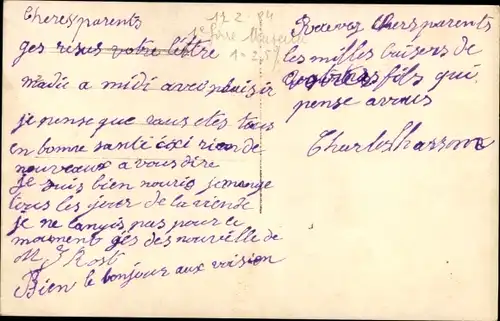 Cheres parents
ges resus votre lettre
Madie a midi avec plaisir
je pense que vous etes tous
en bonne santé ici rien de
nouveaux a vous dire
Je suis bien nouris je mange
tous les jour de la viende
je ne langis pas pour le
moument ges des nouvelle de
M J Rost
Bien le bonjour aux voision
12 2 84
Recevez chers parents
les milles baisers de
votre fils qui
pense a vous
Charles